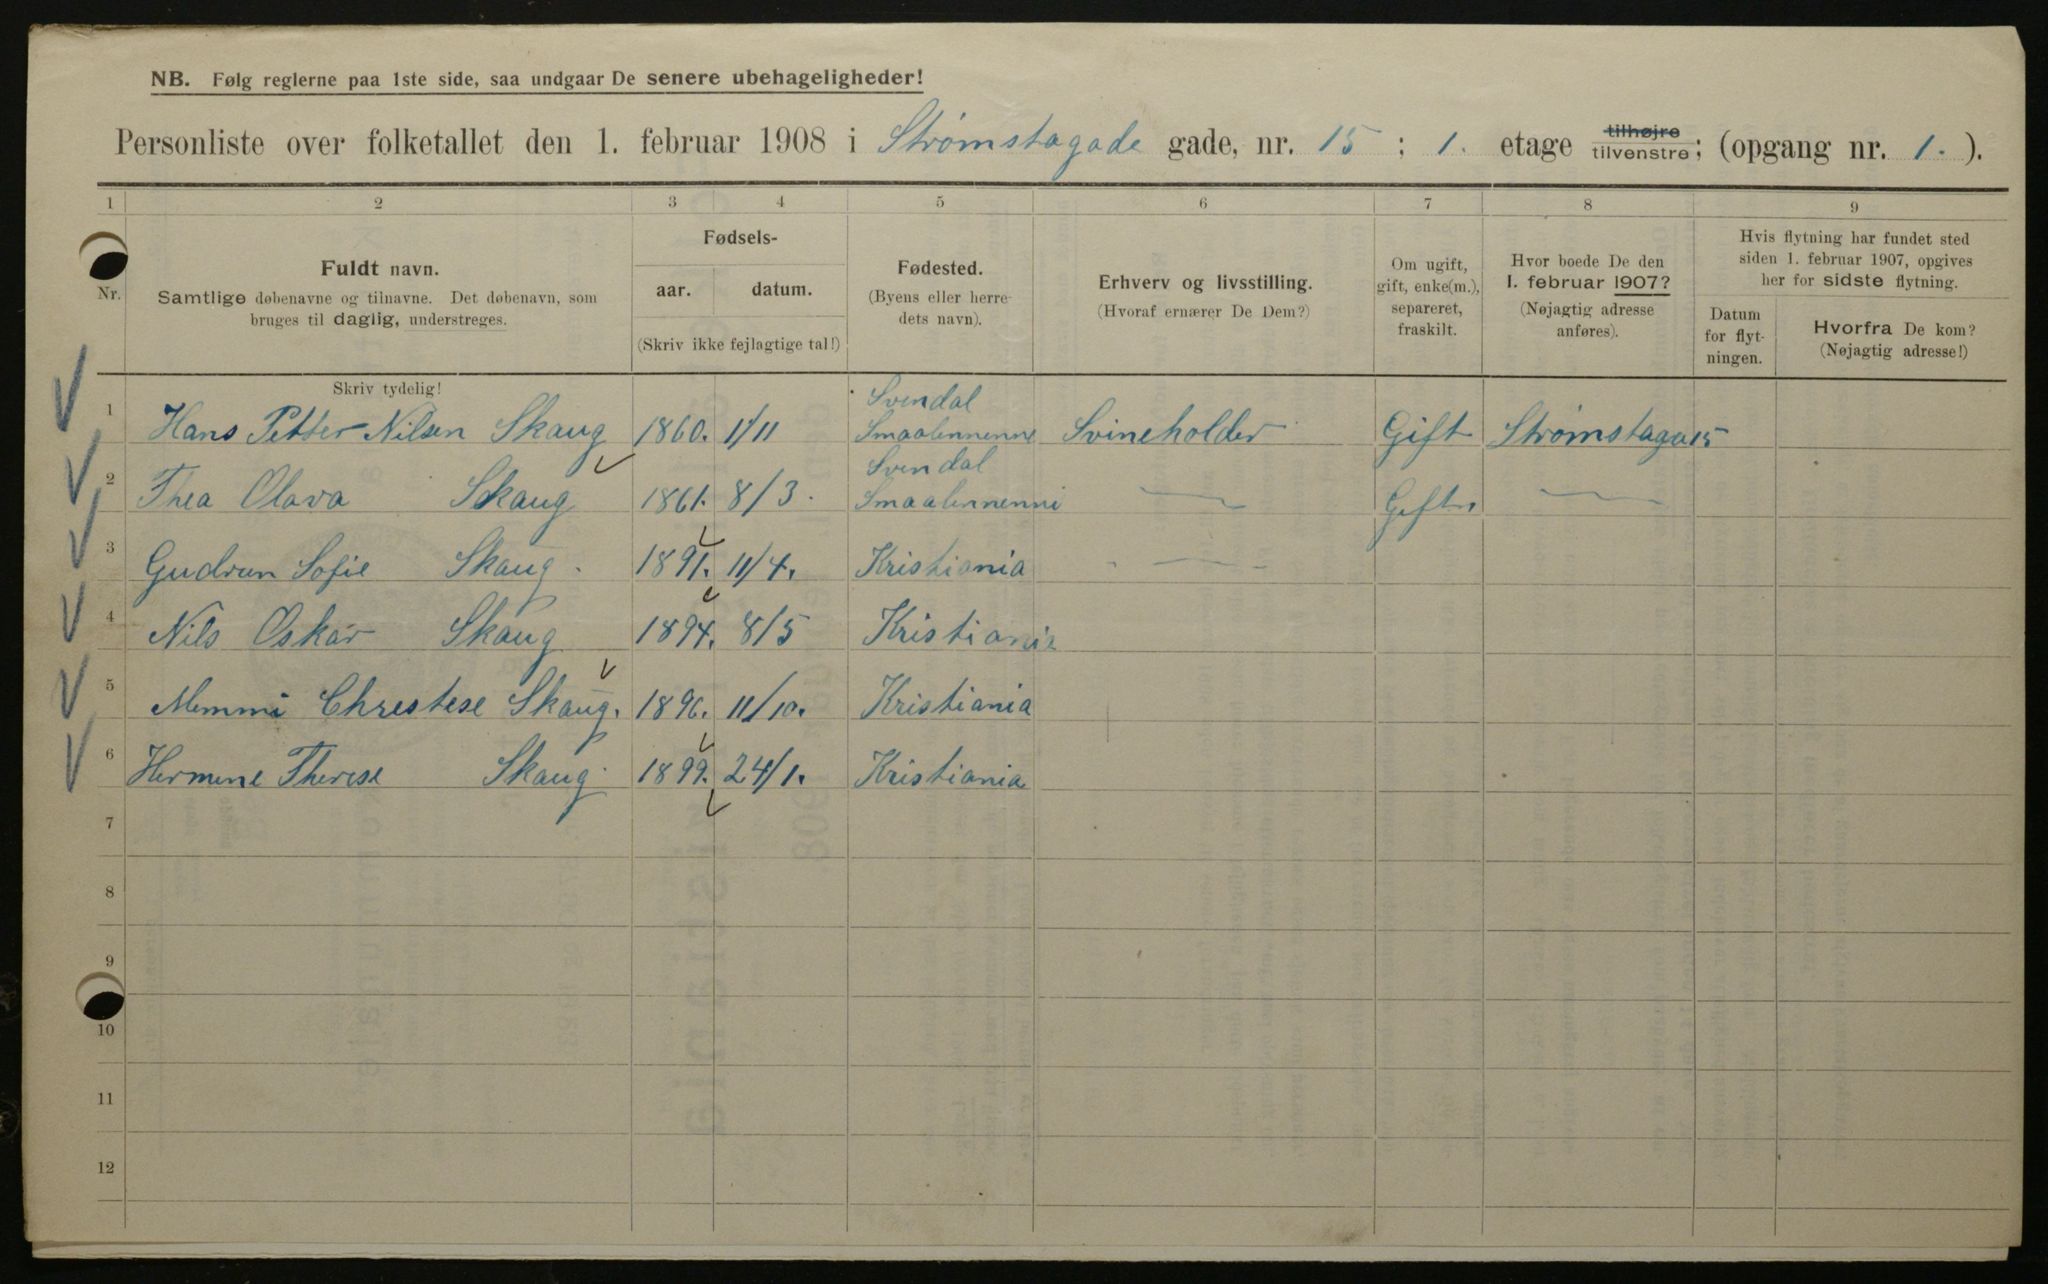 NB. Følg reglerne paa 1ste side, saa undgaar De senere ubehageligheder!
Personliste over folketallet den 1. februar 1908 i Strømstagade gade, nr. 15 ; 1. etage tilhøjre tilvenstre; (opgang nr. 1. ).
1 2 3 4 5 6 7 8 9
Nr.
Fuldt navn.
Samtlige døbenavne og tilnavne. Det døbenavn, som
bruges til daglig, understreges.
Fødsels-
aar. datum.
(Skriv ikke fejlagtige tal!)
Fødested.
(Byens eller herre-
dets navn).
Erhverv og livsstilling.
(Hvoraf ernærer De Dem?)
Om ugift,
gift, enke(m.),
separeret,
fraskilt.
Hvor boede De den
1. februar 1907?
(Nøjagtig adresse
anføres).
Hvis flytning har fundet sted
siden 1. februar 1907, opgives
her for sidste flytning.
Datum
for flyt-
ningen.
Hvorfra De kom?
(Nøjagtig adresse!)
Skriv tydelig!
1 Hans Petter Nilsen Skaug 1860. 1/11 Svendal Smaalennenne Svineholder Gift Strømstaga 15
2 Thea Olava Skaug 1861. 8/3. Svendal Smaalennenni — Gift. —
3 Gudrun Sofie Skaug. 1891. 11/4. Kristiania — 
4 Nils Oskar Skaug 1894. 8/5 Kristiania
5 Memmi Chrestese Skaug. 1896. 11/10. Kristiania
6 Hermene Therese Skaug. 1899. 24/1. Kristiania
7
8
9
10
11
12